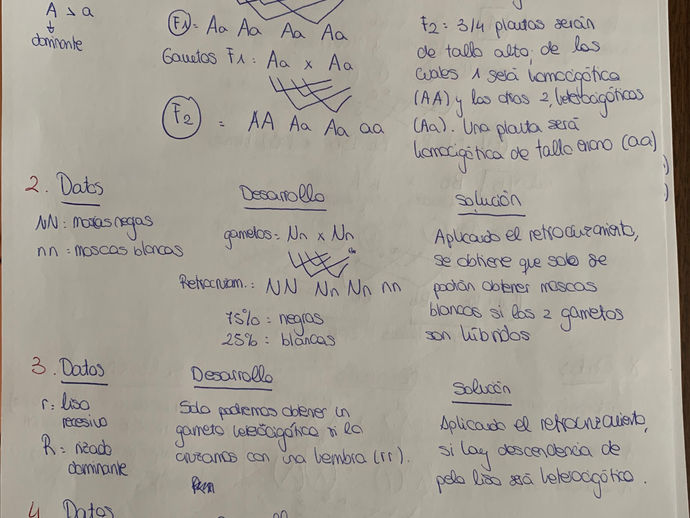 A > a
dominante
F1 = Aa Aa Aa Aa
Gametos F1 : Aa x Aa
F2 = AA Aa Aa aa
F2 = 3/4 plantas serán
de tallo alto, de las
cuales 1 será homocigótica
(AA) y las otras 2, heterocigóticas
(Aa). Una planta será
homocigótica de tallo enano (aa)
2. Datos
NN : moscas negras
nn : moscas blancas
Desarrollo
gametos = Nn x Nn
Retrocruzam. : NN Nn Nn nn
75% : negras
25% : blancas
Solución
Aplicando el retrocruzamiento,
se obtiene que solo se
podrán obtener moscas
blancas si los 2 gametos
son híbridos
3. Datos
r : liso
recesivo
R = rizado
dominante
Desarrollo
Solo podremos obtener un
gameto heterocigótico si lo
cruzamos con una hembra (rr).
Solución
Aplicando el retrocruzamiento,
si hay descendencia de
pelo liso será heterocigótico.
4 Datos